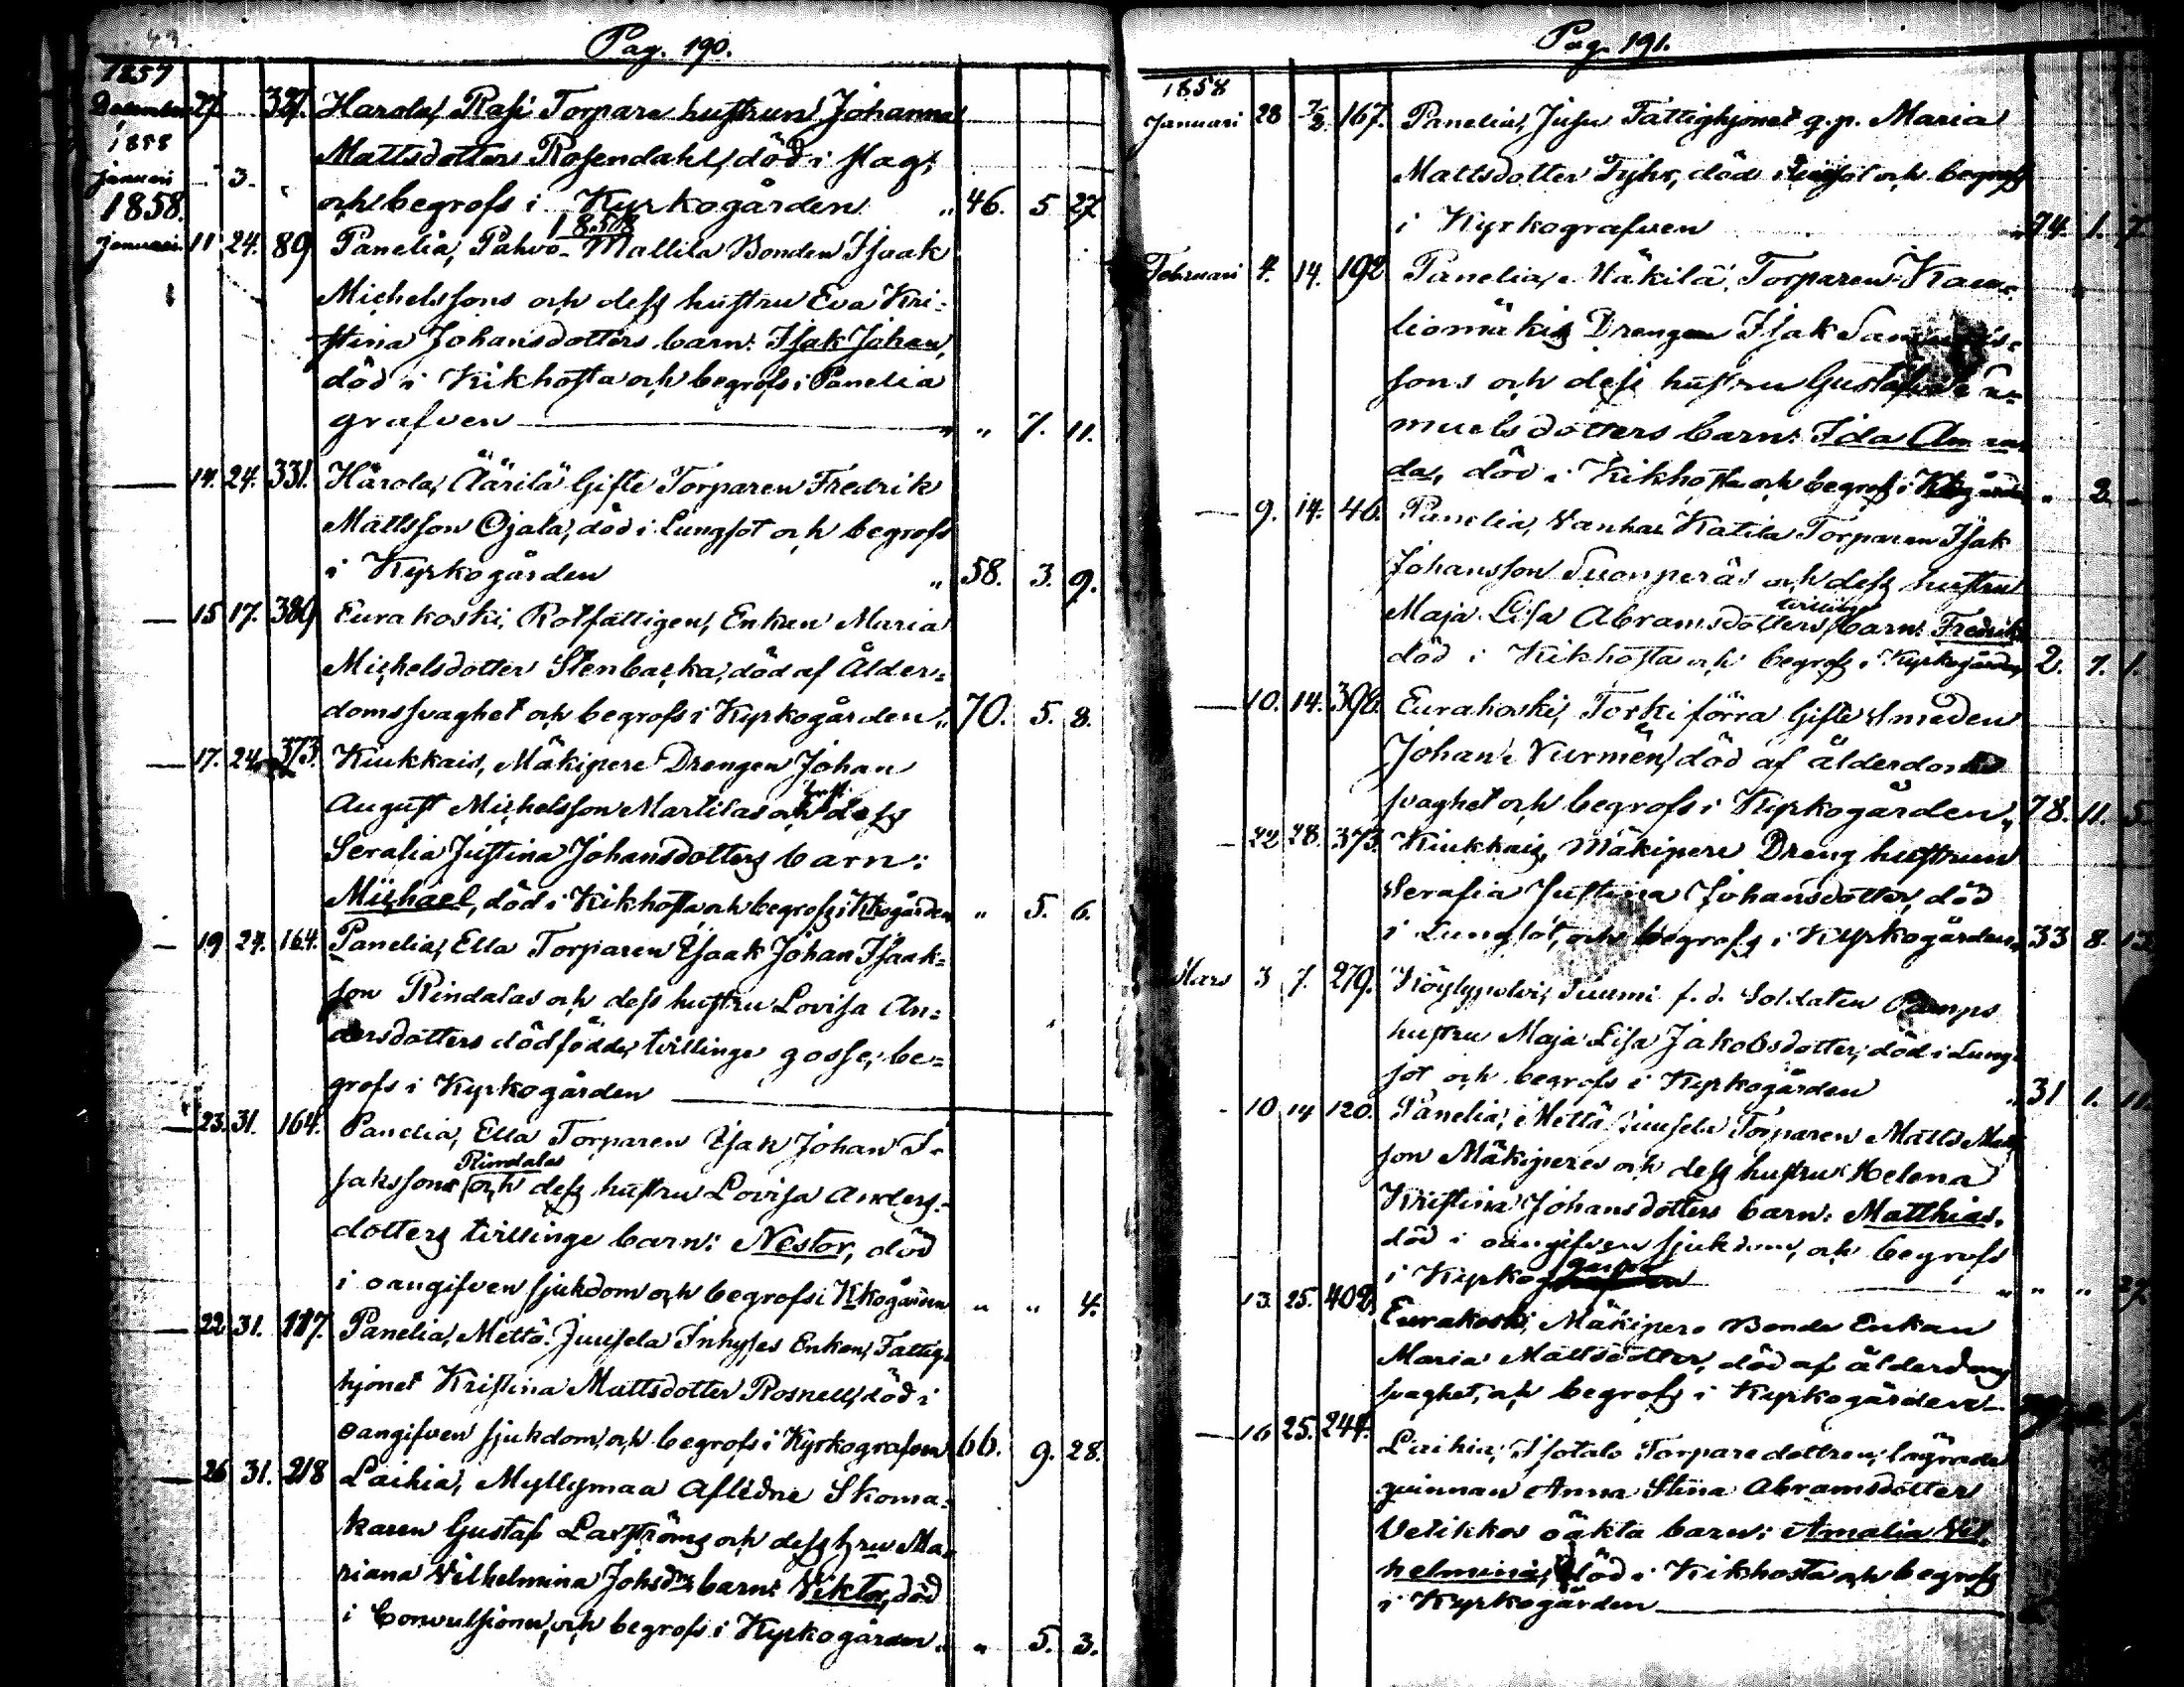 Pag. 190.
1857
December 27. 327. Harola, Rasi Torpare hustrun Johanna
1858
Mattsdotter Rosendahl, död i slag,
Januari 3.
och begrofs i Kyrkogården „ 46. 5 27
1858.
1858
Januari 11 24. 89 Panelia, Pahvo-Mallila Bonden Isaak
Michelssons och dess hustru Eva Kri-
stina Johansdotters barn: Isak Johan,
död i Kikhosta och begrofs i Panelia
grafven „ „ 7. 11.
14. 24. 331. Härola, Äärilä Gifte Torparen Fredrik
Mattsson Ojala, död i Lungsot och begrofs
i Kyrkogården „ 58. 3. 9.
15 17. 389 Eurakoski, Rotfattigen, Enkan Maria
Michelsdotter Stenbacka, död af Ålder-
domssvaghet och begrofs i Kyrkogården „ 70. 5. 8.
17. 24. 373. Kiukkais, Mäkipere Drengen Johan
August Michelsson Martilas och dess
Serafia Justina Johansdotters barn:
Michael, död i Kikhosta och begrofs i Kkogården „ 5. 6.
19 24. 164. Panelia, Ella Torparen Isaak Johan Isaak-
son Rindalas och dess hustru Lovisa An-
dersdotters dödfödde, tvillinge gosse, be-
grofs i Kyrkogården
23. 31. 164. Panelia, Ella Torparen Isak Johan I-
Rindalas
sakssons och dess hustru Lovisa Anders-
dotters tvillinge barn: Nestor, död
i oangifven sjukdom och begrofs i Kkogården „ „ 4.
22 31. 117. Panelia, Mettä-Juusela Inhyses Enkan, Fattig-
hjonet Kristina Mattsdotter Rosnell, död i
oangifven sjukdom, och begrofs i Kyrkografven 66. 9. 28.
26 31. 218 Laihia, Myllymaa Aflidne Skoma-
karen Gustaf Laxströms och dess hru Ma-
riana Vilhelmina Johsdrs barn: Viktor, död
i Convulsioner, och begrofs i Kyrkogården „ „ 5. 3.
Pag. 191.
1858
Januari 28 7/2. 167. Panelia, Jusu Fattighjonet q.p. Maria
Mattsdotter Fyhr, död i Lungsot och begrofs
i Kyrkografven „ 74. 1. 7
Februari 4. 14. 192 Panelia, Mäkilä, Torparen
Drengen Isak
sons och dess hustru Gustafva Sa-
muelsdotters barn: Ida Aman-
da, död i Kikhosta och begrofs i Kkogården „ 2 -
9. 14. 46. Panelia, Vanha Katila Torparen Isak
Johansson Suonperäs och dess hustru
tvillinge
Maja Lisa Abramsdotters barn: Fredrik
död i Kikhosta och begrofs i Kyrkogården 2. 7. 1.
10. 14. 398. Eurakoski, Torki förra Gifte Smeden
Johan Nurmén, död af ålderdoms
svaghet och begrofs i Kyrkogården „ 78. 11. 5
22 28. 373. Kiukkais, Mäkipere Dreng hustrun
Serafia Justina Johansdotter, död
i Lungsot, och begrofs i Kyrkogården „ 33 8. 13.
Mars 3 7. 279. Köylypolvi, Tuumi f. d. Soldaten Pamps
hustru Maja Lisa Jakobsdotter, död i Lung-
sot och begrofs i Kyrkogården „ 31 1. 11.
10 14 120. Panelia, Mettä Juusela Torparen Matts Matts
son Mäkiperes och dess hustru Helena
Kristina Johansdotters barn: Matthias,
död i oangifven sjukdom, och begrofs
i Kyrkogården „ „ „ 27.
13. 25. 402. Eurakoski, Mäkipere Bonde Enkan
Maria Mattsdotter, död af ålderdoms
svaghet, och begrofs i Kyrkogården
16 25. 244. Laihia, Isotalo Torpare dottren, lägrade
qvinnan Anna Stina Abramsdotter
Velikkos oäkta barn: Amalia Vil-
helmina, död i Kikhosta och begrofs
i Kyrkogården